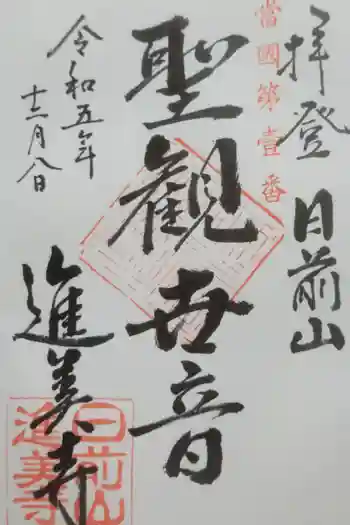 當國第壹番
拝登 日前山
聖観世音
令和五年
十二月八日
進美寺
日前山
進美寺